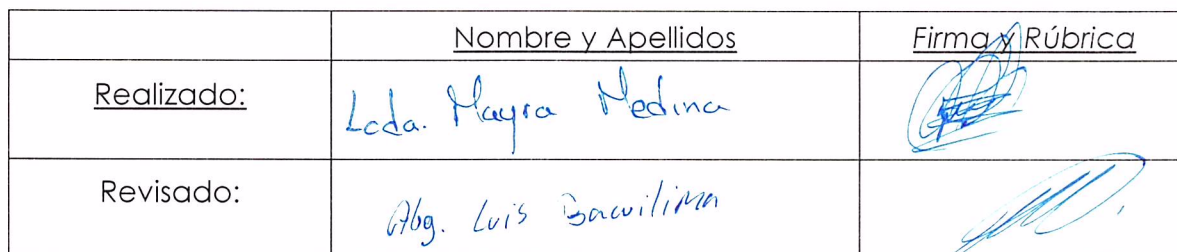 Nombre y Apellidos Firma y Rúbrica
Realizado: Lcda. Mayra Medina
Revisado: Abg. Luis Bacuilima